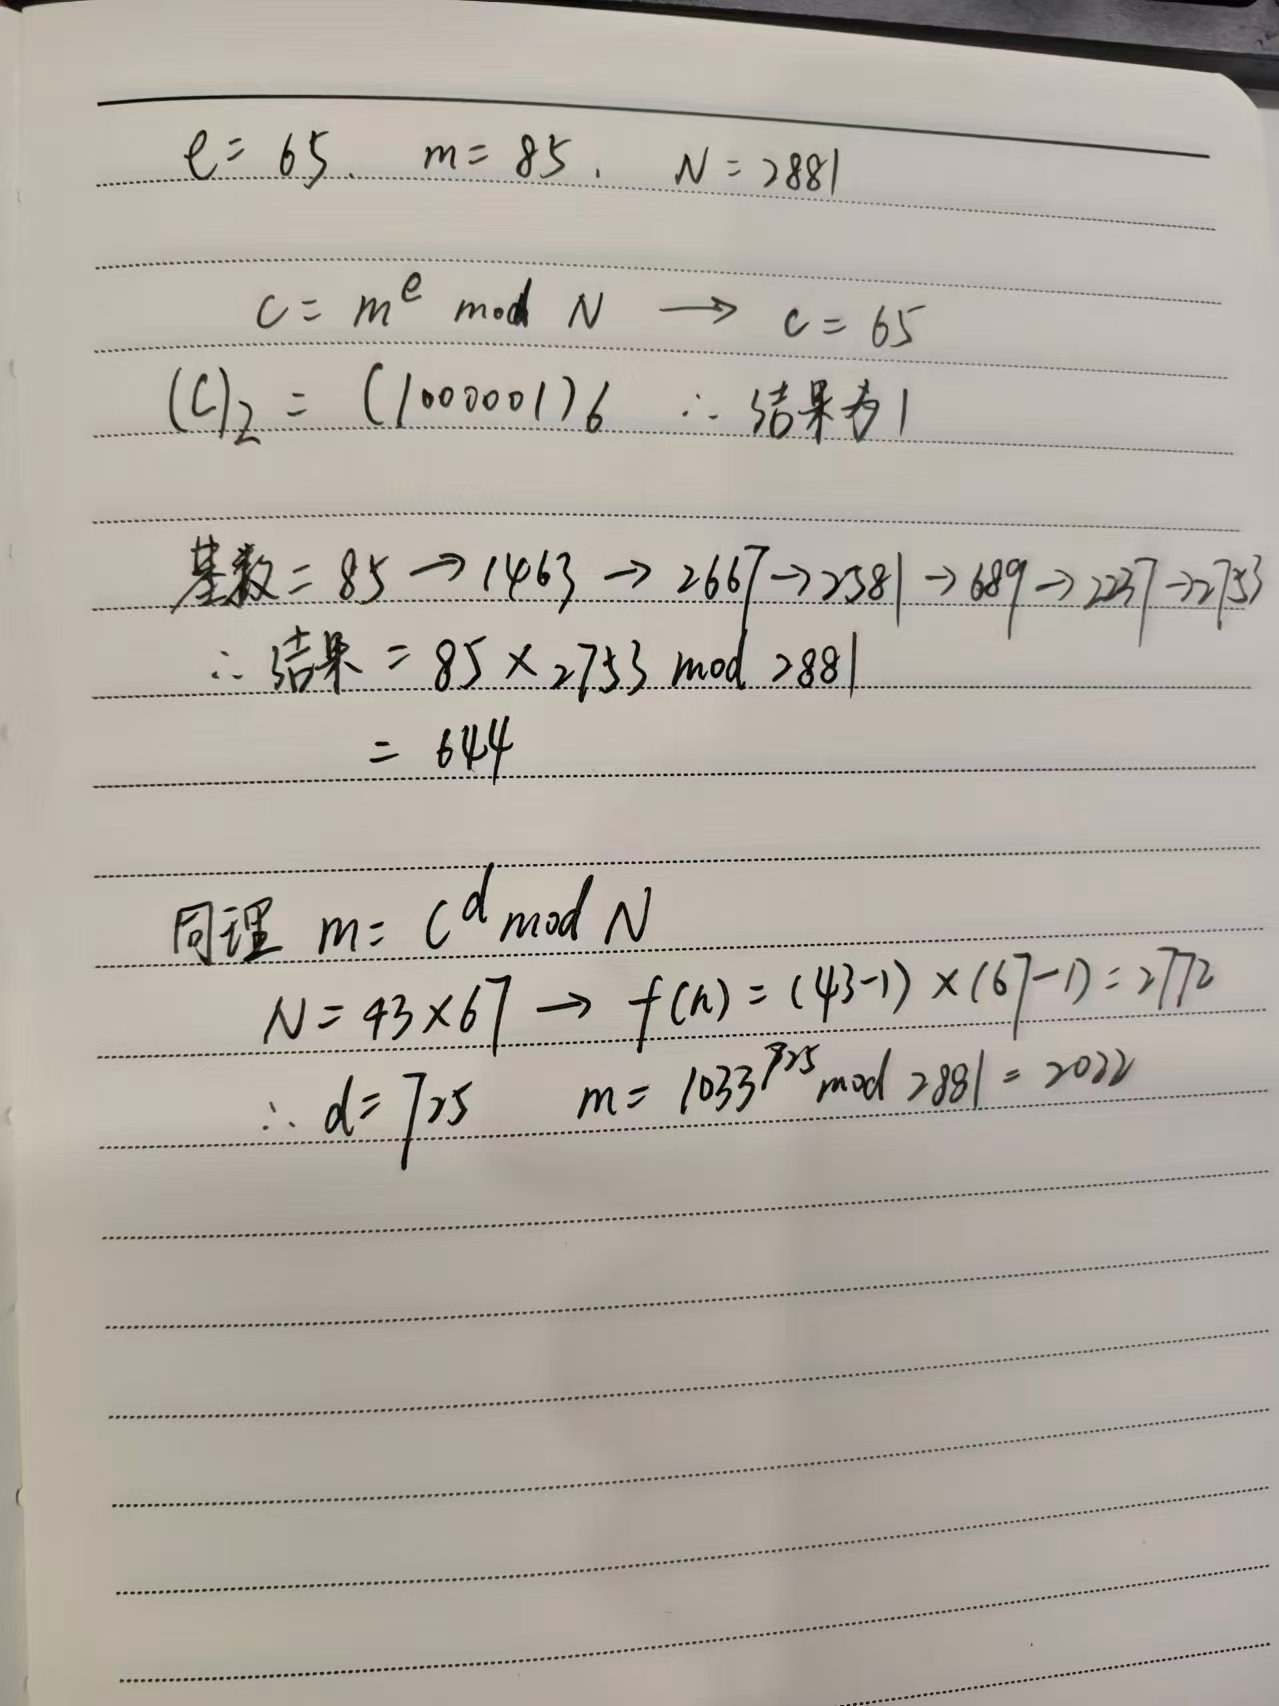 e = 65. m = 85. N = 2881
c = m^e mod N → c = 65
(C)_2 = (1000001)6 ∴ 结果为1
基数 = 85 → 1463 → 2667 → 2581 → 689 → 2237 → 2753
∴ 结果 = 85 × 2753 mod 2881
= 644
同理 m = C^d mod N
N = 43×67 → f(n) = (43-1) × (67-1) = 2772
∴ d = 725 m = 1033^725 mod 2881 = 2022